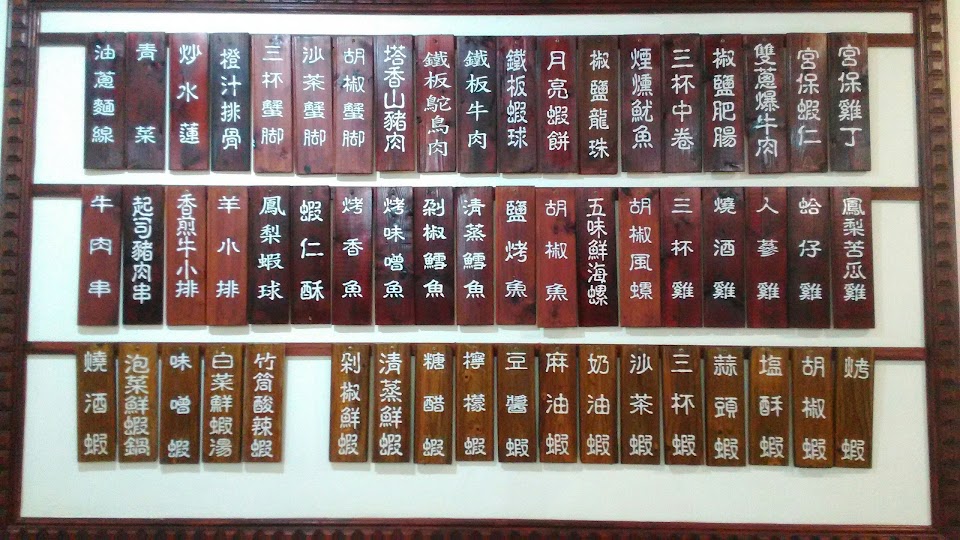 宮保雞丁
宮保蝦仁
雙蔥爆牛肉
椒鹽肥腸
三杯中卷
煙燻魷魚
椒鹽龍珠
月亮蝦餅
鐵板蝦球
鐵板牛肉
鐵板鴕鳥肉
塔香山豬肉
胡椒蟹脚
沙茶蟹脚
三杯蟹脚
橙汁排骨
炒水蓮
青菜
油蔥麵線
鳳梨苦瓜雞
蛤仔雞
人蔘雞
燒酒雞
三杯雞
胡椒風螺
五味鮮海螺
胡椒魚
鹽烤魚
清蒸鱈魚
剁椒鱈魚
烤味噌魚
烤香魚
蝦仁酥
鳳梨蝦球
羊小排
香煎牛小排
起司豬肉串
牛肉串
烤蝦
胡椒蝦
塩酥蝦
蒜頭蝦
三杯蝦
沙茶蝦
奶油蝦
麻油蝦
豆醬蝦
檸檬蝦
糖醋蝦
清蒸鮮蝦
剁椒鮮蝦
竹筒酸辣蝦
白菜鮮蝦湯
味噌蝦
泡菜鮮蝦鍋
燒酒蝦